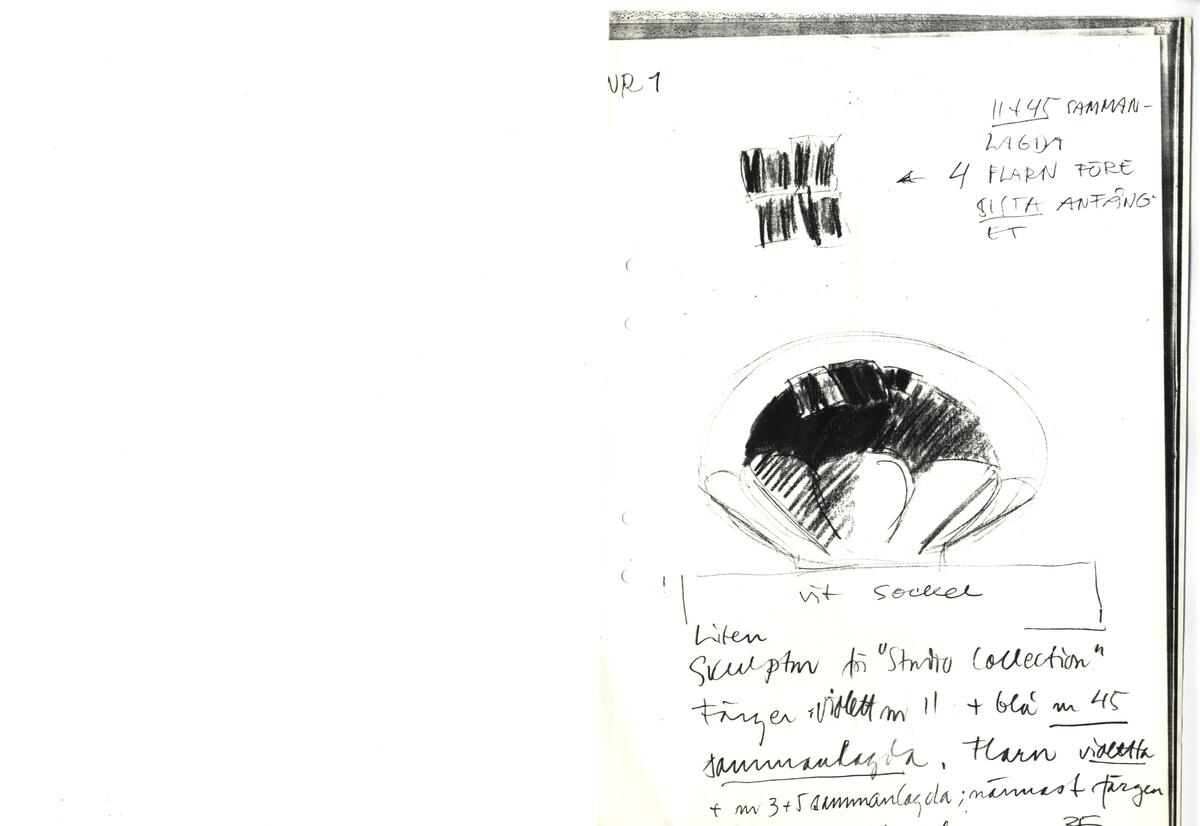 NR 1
11+45 SAMMAN-
LAGDA
4 FLARN FÖRE
SISTA ANFÅNG-
ET
vit sockel
Liten
Skulptur för "Studio Collection"
Färger : violett nr 11 + blå nr 45
sammanlagda. Flarn violetta
+ nr 3+5 sammanlagda; närmast färgen
35